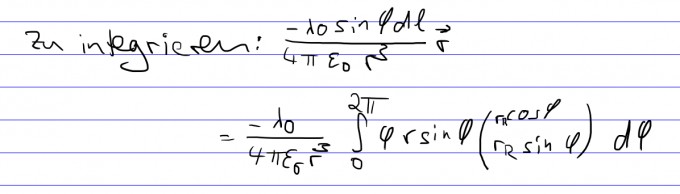 Zu integrieren: \frac{-λ0 sin φ dl}{4π ε_0 r^3} \vec{r}
= \frac{-λ0}{4πε_0 r^3} \int_0^{2π} φ r sin φ \binom{r_R cos φ}{r_R sin φ} dφ